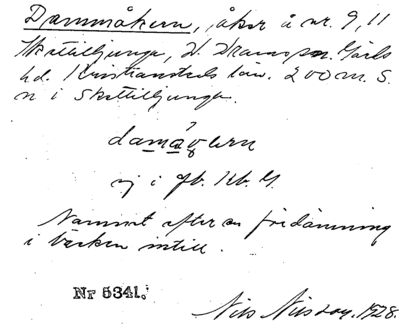 Dammåkern, åker å nr. 9, 11
Skättilljunga, V. Vrams sn. Gärds
hd. Kristianstads län. 200 m. S.
n i Skättilljunga.
damågern
ej i jb. Kb. G.
Namnet efter en fördämning
i bäcken intill.
Nr 5341.
Nils Nilsson. 1928.